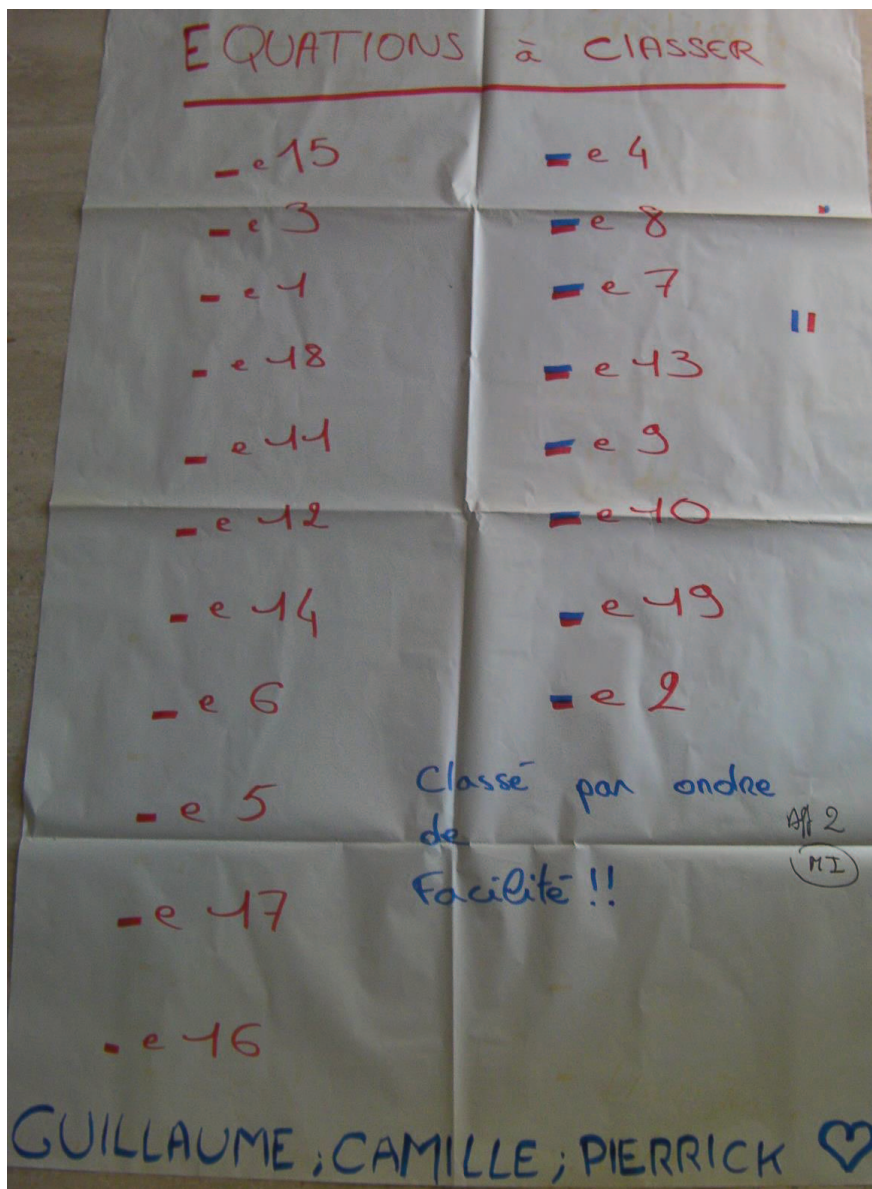 EQUATIONS à ClASSER
- e 15
- e 3
- e 1
- e 18
- e 11
- e 12
- e 14
- e 6
- e 5
- e 17
- e 16
- e 4
- e 8
- e 7
- e 13
- e 9
- e 10
- e 19
- e 2
Classé par ordre
de
Facilité !!
Aff 2
MI
GUILLAUME ; CAMILLE ; PIERRICK ♡